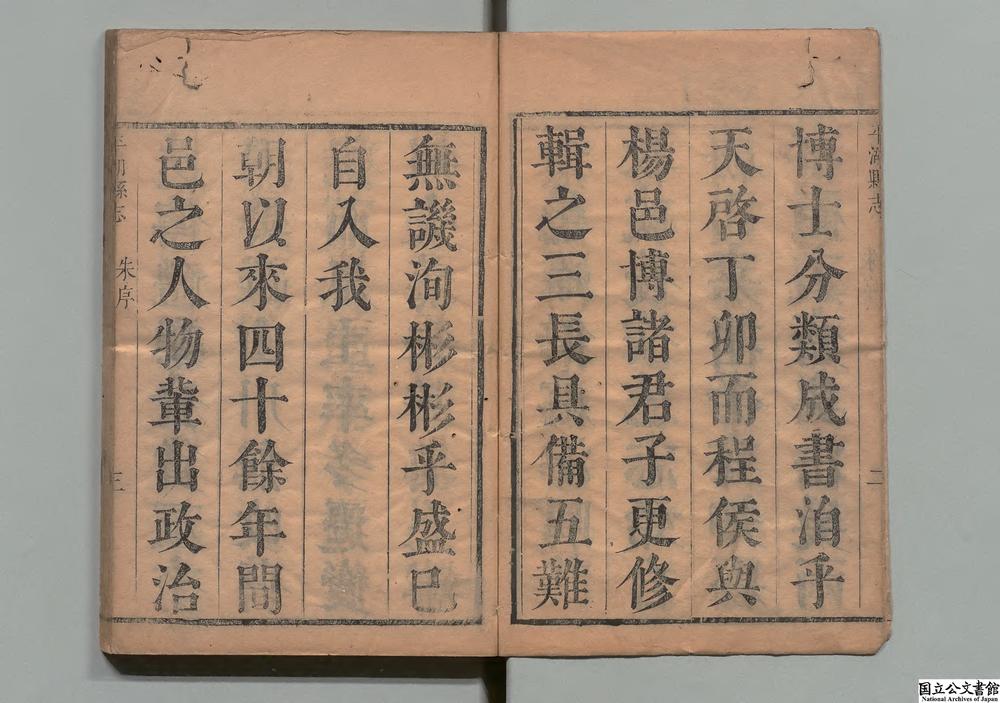 博士分類成書洎乎
天啓丁卯而程侯與
楊邑博諸君子更修
輯之三長具備五難
無譏洵彬彬乎盛已
自入我
朝以來四十餘年間
邑之人物輩出政治
平湖縣志
二
平湖縣志 朱序 三
国立公文書館
National Archives of Japan